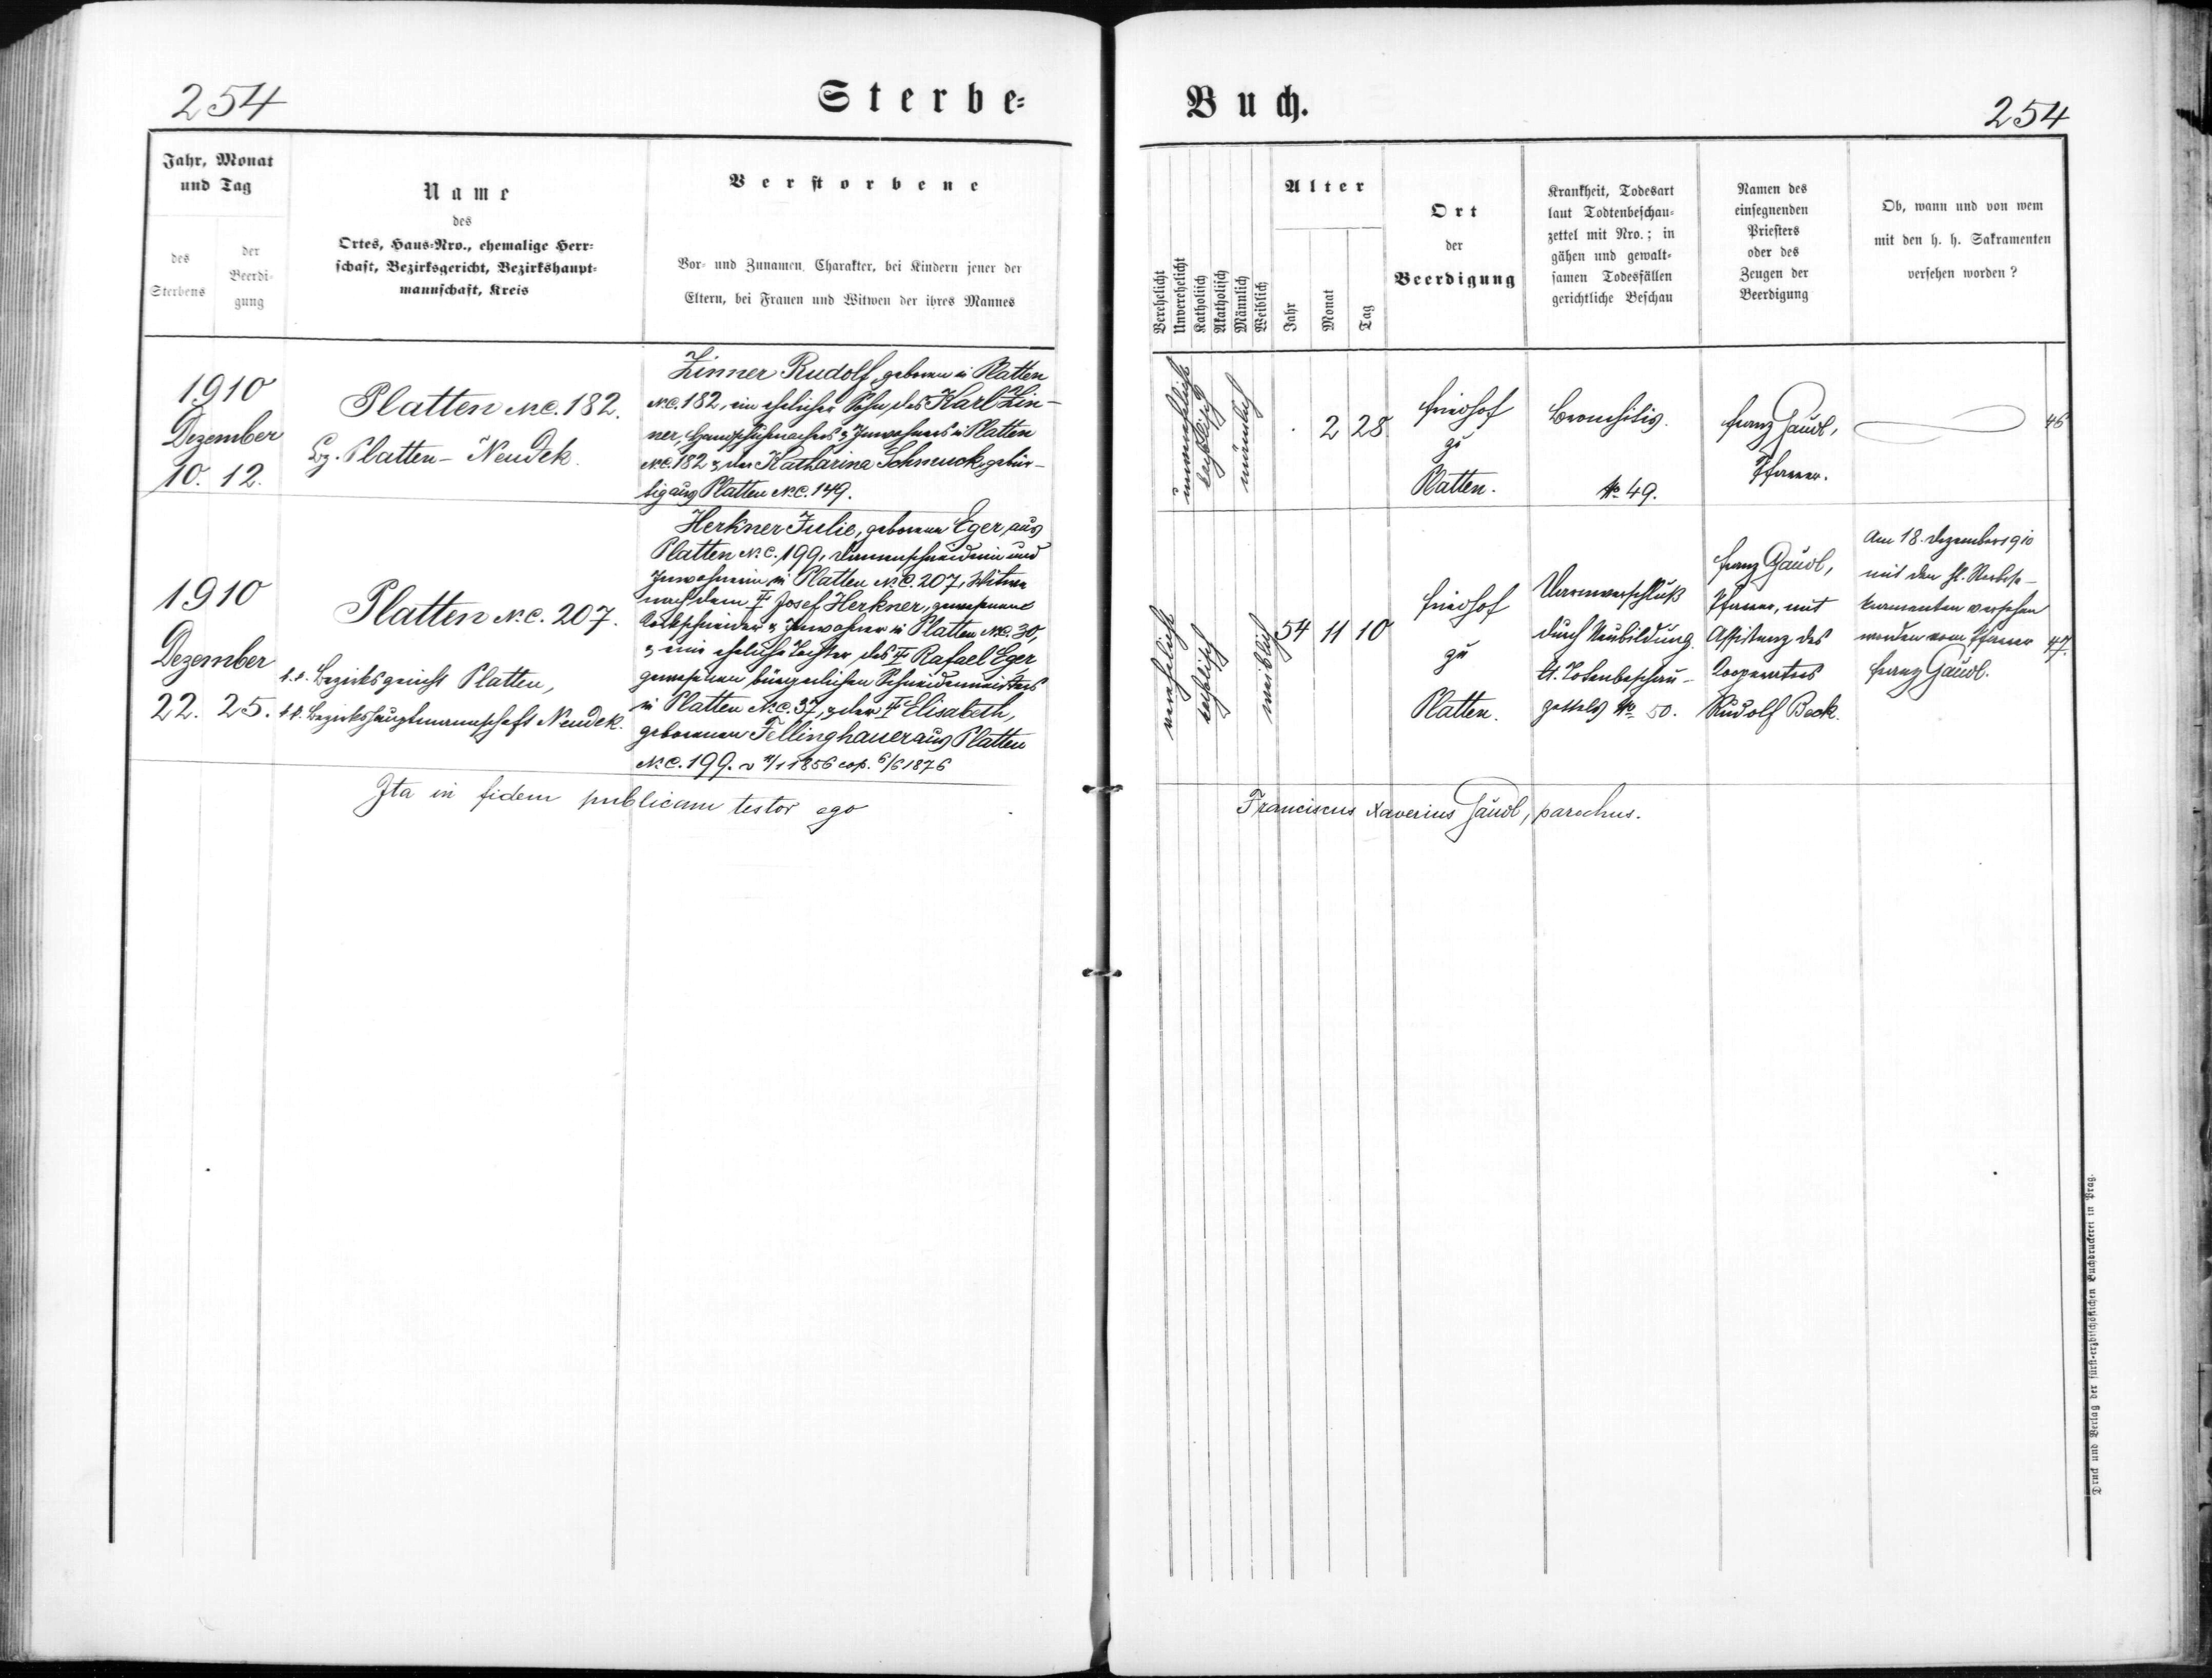 254
Sterbe=
Jahr, Monat
und Tag
des
Sterbens
der
Beerdi=
gung
Name
des
Ortes, Haus=Nro., ehemalige Herr=
schaft, Bezirksgericht, Bezirkshaupt=
mannschaft, Kreis
Verstorbene
Vor= und Zunamen, Charakter, bei Kindern jener der
Eltern, bei Frauen und Witwen der ihres Mannes
1910
Dezember
10. 12.
Platten N.C. 182.
Bz. Platten - Neudek.
Zinner Rudolf, geboren in Platten
N.C. 182, ein ehelicher Sohn des Karl Zin-
ner, Handschuhmachers & Inwohners in Platten
N.C. 182 & der Katharina Schmuck gebür-
tig aus Platten N.C. 149.
1910
Dezember
22. 25.
Platten N.C. 207.
k.k. Bezirksgericht Platten,
k.k. Bezirkshauptmannschaft Neudek.
Herkner Julie, geborene Eger, aus
Platten N.C. 199, Damenschneiderin und
Inwohnerin in Platten N.C. 207, Witwe
nach dem † Josef Herkner, gewesenen
Inwohner in Platten N.C. 30,
& eine eheliche Tochter des † Rafael Eger
gewesenen bürgerlichen Schneidermeisters
in Platten N.C. 37, & der † Elisabeth,
geborenen Fellinghauer aus Platten
N.C. 199. 11/1 1856 cop. 6/6 1876
Ita in fidem publicam testor ego
Buch.
254
Verehelicht
Unverehelicht
Katholisch
Akatholisch
Männlich
Weiblich
Alter
Jahr
Monat
Tag
Ort
der
Beerdigung
Krankheit, Todesart
laut Todtenbeschau=
zettel mit Nro.; in
gähen und gewalt=
samen Todesfällen
gerichtliche Beschau
Namen des
einsegnenden
Priesters
oder des
Zeugen der
Beerdigung
Ob, wann und von wem
mit den h. h. Sakramenten
versehen worden?
unverehelicht
katholisch
männlich
2 28.
Friedhof
zu
Platten.
Bronchitis.
No 49.
Franz Gaudl,
Pfarrer.
46
verehelicht
katholisch
weiblich
54 11 10
Friedhof
zu
Platten.
Darmverschluß
durch Neubildung
lt. Totenbeschau-
zettels No 50.
Franz Gaudl,
Pfarrer, mit
Assistenz des
Cooperators
Rudolf Beck.
Am 18. Dezember 1910
mit den hl. Sterbesa-
kramenten versehen
worden vom Pfarrer
Franz Gaudl.
47.
Franciscus Xaverius Gaudl, parochus.
Druck und Verlag der fürst=erzbischöflichen Buchdruckerei in Prag.